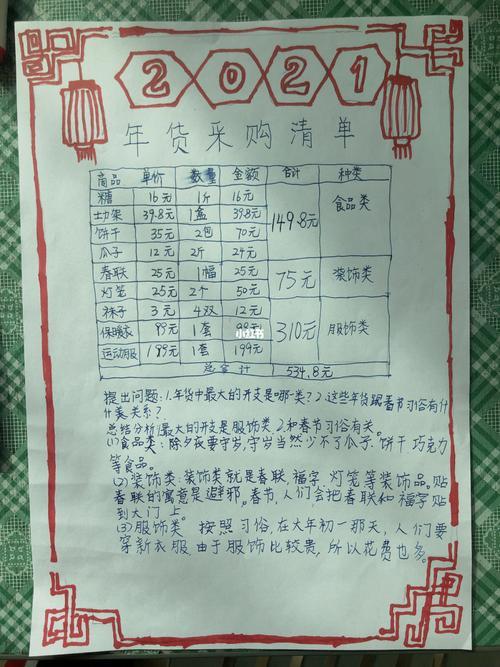 2021
年货采购清单
商品 单价 数量 金额 合计 种类
糖 16元 1斤 16元 149.8元 食品类
39.8元 1盒 39.8元
饼干 35元 2包 70元
瓜子 12元 2斤 24元
春联 25元 1幅 25元 75元 装饰类
灯笼 25元 2个 50元
袜子 3元 4双 12元 310元 服饰类
保暖衣 99元 1套 99元
运动服 199元 1套 199元
总合计 534.8元
小红书
提出问题:1.年货中最大的开支是哪一类?2.这些年货跟春节习俗有什
什么关系?
总结分析:1.最大的开支是服饰类 2.和春节习俗有关。
(1)食品类:除夕夜要守岁,守岁当然少不了瓜子、饼干、巧克力
等食品。
(2)装饰类:装饰类就是春联,福字,灯笼等装饰品。贴
春联的寓意是避邪。春节,人们会把春联和福字贴
到大门上。
(3)服饰类 按照习俗,在大年初一那天,人们要
穿新衣服由于服饰比较贵,所以花费也多。